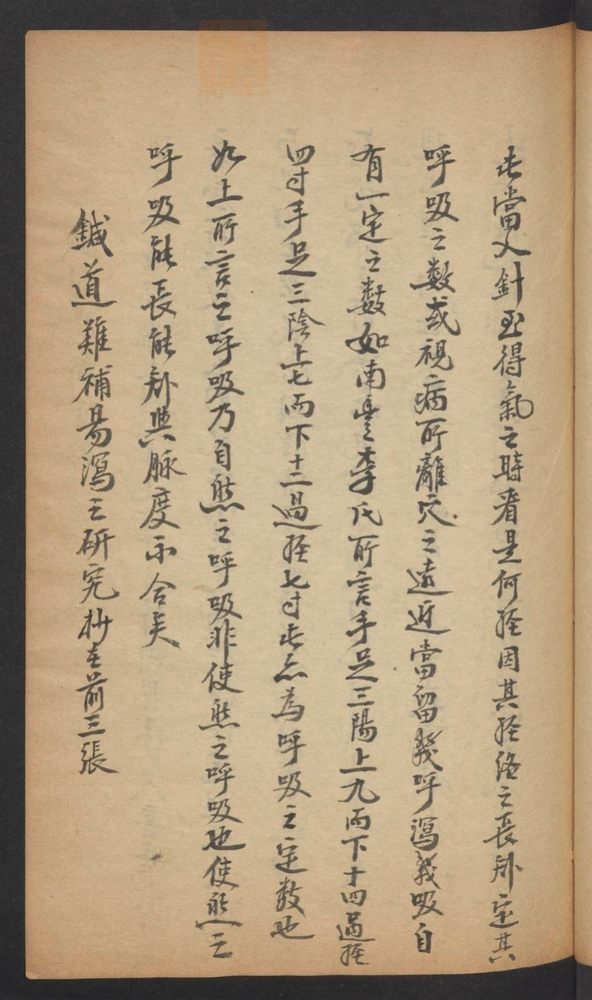 此當入針至得氣之時看是何經因其經絡之長短定其
呼吸之數或視病所離穴之遠近當留幾呼瀉幾吸自
有一定之數如南豊李氏所言手足三陽上九而下十四過經
四寸手足三陰上七而下十二過經七寸此亦為呼吸之定數也
如上所言之呼吸乃自然之呼吸非使然之呼吸也使然之
呼吸能長能短與脉度不合矣
鍼道難補易瀉之研究抄在前三張